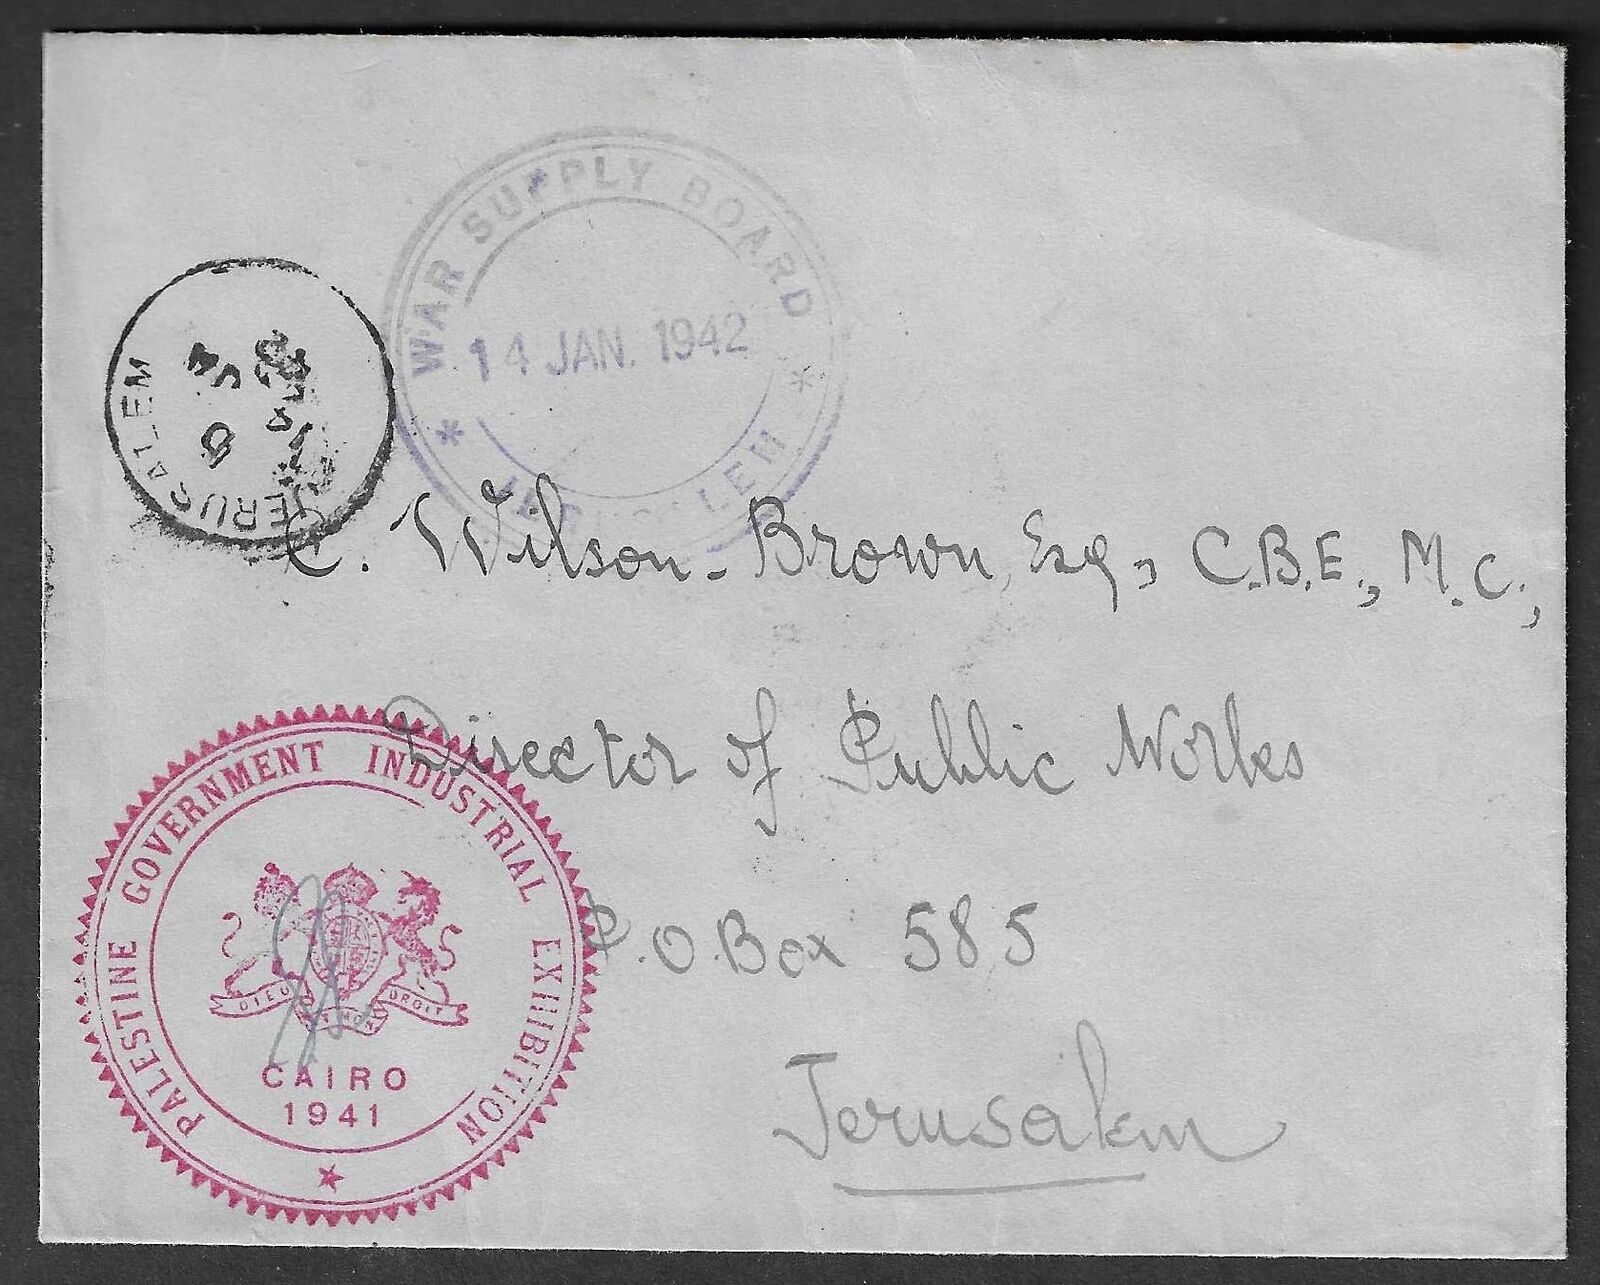 WAR SUPPLY BOARD
14 JAN. 1942
* JERUSALEM *
JERUSALEM
C. Wilson-Brown, Esq., C.B.E., M.C.,
Director of Public Works
P.O. Box 585
Jerusalem
PALESTINE GOVERNMENT INDUSTRIAL EXHIBITION
DIEU ET MON DROIT
CAIRO
1941